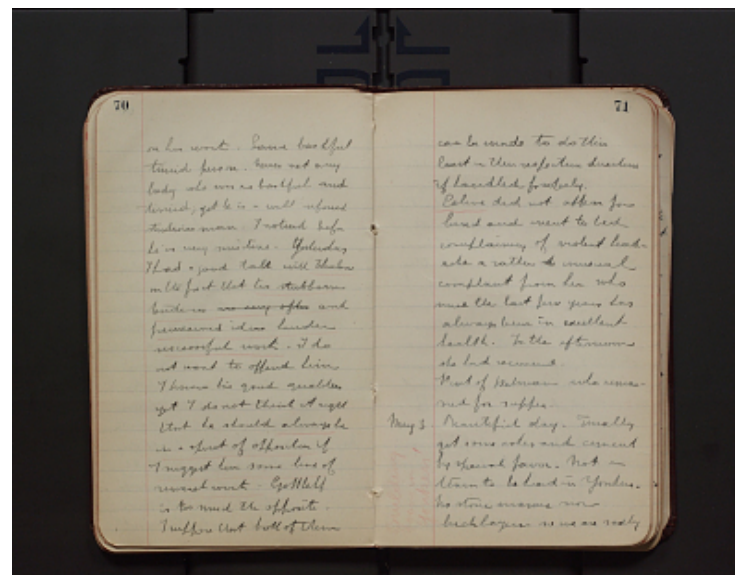 70
on his work. Same bashful
timid person. Never met any
body who was so bashful and
timid, yet he is a well informed
studious man. I noticed before
he is very
Yesterday
I had a good talk with Thurlow
on the fact that his stubborn
and
preconceived ideas hinder
successful work. I do
not want to offend him
I know his good qualities
yet I do not think it right
that he should always be
in a spirit of opposition if
I suggest him some line of
research work. Gottlieb
is too much the opposite.
I suppose that both of them
71
can be made to do their
best in their respective direction
if handled properly.
Celine did not appear for
lunch and went to bed
complaining of violent head-
ache a rather unusual
complaint from her who
since the last few years has
always been in excellent
health. In the afternoon
she had recovered.
Visit of
who remai-
ned for supper.
May 3
Beautiful day. Finally
got some coles and cement
by special favor. Not an
to be had in Yonkers.
No stone masons nor
bricklayers so we are sadly